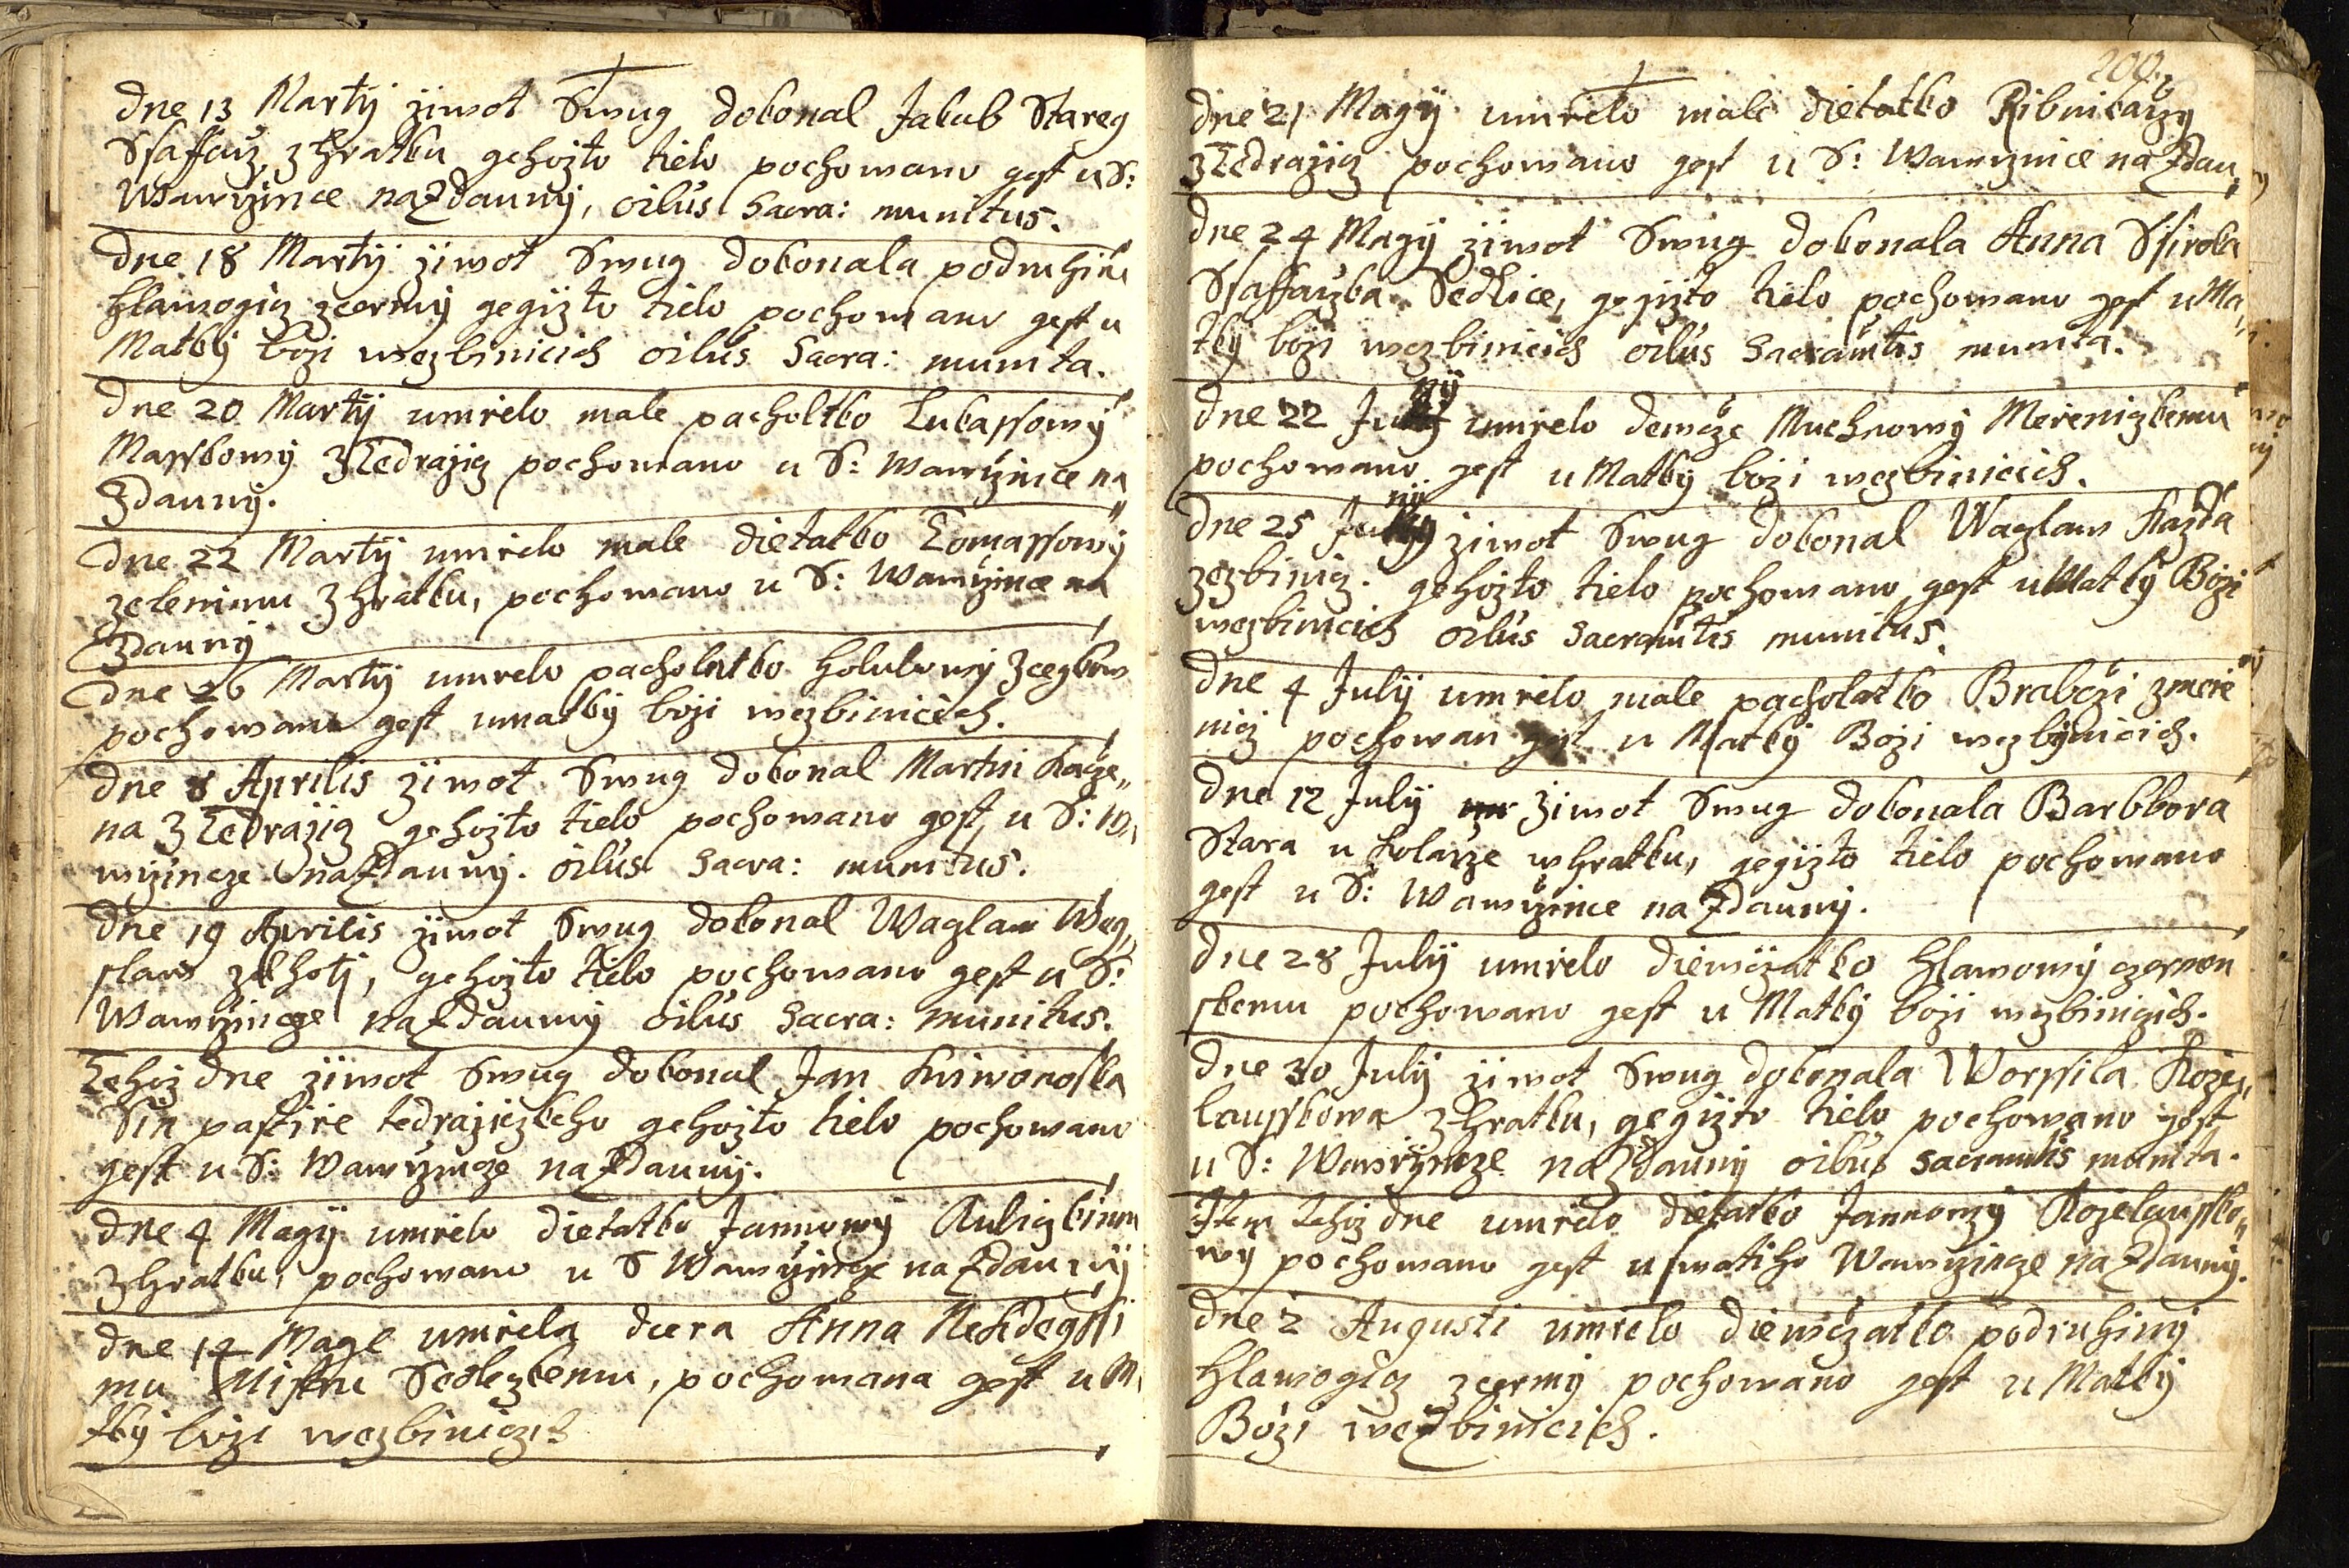 dne 13 Martÿ ziwot Swug dokonal Jakub Stareg
Ssaffarz z hratku gehozto tielo pochowano gest u S:
Wawrzince na Zdauny, oibus Sacra: munitus.
dne 18 Martÿ ziwot Swug dokonala podruhine
hlawzogiz zcerny gegizto tielo pochowano gest u
Matky bozi wezbinicich oibus Sacra: munita.
dne 20 Martÿ umrelo male pacholtko Lukassowy
Masskowy z Tedrazig pochowano u S: Wawrzince na
Zdauny.
dne 22 Martÿ umrelo male dietatko Tomassowy
zelenimu z hratku, pochowano u S: Wawrzince na
Zdauny
dne 26 Martÿ umrelo pacholatko holubowy
pochowano gest u matky bozi wezbinicich.
dne 8 Aprilis ziwot Swug dokonal Martin Kaze„
na z Tedrazig gehozto tielo pochowano gest u S: Wa
wrzincze na Zdauny. oibus Sacra: munitus.
dne 19 Aprilis ziwot Swug dokonal Waglaw Weg„
slaws zlhotj, gehozto tielo pochowano gest u S:
Wawrzincze na Zdauny oibus Sacra: munitus.
Tehoz dne ziwot Swug dokonal Jan Kriwonoska
Sin pastire tedrazizkeho gehozto tielo pochowano
gest u S: Wawrzincze na Zdauny.
dne 4 Magÿ umrelo dietatko Jannowy Kuligkinu
z hratku, pochowano u S Wawrzincze na Zdauny
dne 14 Mage umrela dcera Anna Nekdegssi
mu Mistru Sedlezkemu, pochowana gest u Ma
tky bozi wezbinicich
200.
dne 21 Magÿ umrelo male dietatko Ribnikarzy
z Tedrazig pochowano gest u S: Wawrzince na Zdau„
dne 24 Magÿ ziwot Swug dokonala Anna Ssiroka
Ssaffarzka Sedlice, gegizto tielo pochowano gest u Ma„
tky bozi wezbinicich oibus Sacramtis munita.
dne 22 Junÿ umrelo dewcze Muchnowy Merenizkemu
pochowano gest u Matky bozi wezbinicich.
dne 25 Junÿ ziwot Swug dokonal Waglaw Kazda
zezbinig. gehozto tielo pochowano gest u Matky Bozi
wezbinicich oibus Sacramtis munitus.
dne 4 Julÿ umrelo male pacholatko Brabczi zmere
nicz pochowan gest u Matky Bozi wezbynicich.
dne 12 Julÿ ziwot Swug dokonala Barbbora
Stara u kolarze w hratku, gegizto tielo pochowano
gest u S: Wawrzince na Zdauny.
dne 28 Julÿ umrelo diewczatko hlawowy czernon
skemu pochowano gest u Matky bozi wezbinigich.
dne 30 Julÿ ziwot Swug dokonala Worssila Koze„
lausskowa z hratku, gegizto tielo pochowano gest
u S: Wawrzincze na Zdauny oibus sacramtis munita.
Item tehoz dne umrelo dietatko Jannowy Kozelaussko„
wy pochowano gest u swatiho Wawrzincze na Zdauny.
dne 2 Augusti umrelo diewczatko podruhiny
hlawogicz zcerny pochowano gest u Matky
Bozi wezbinicich.